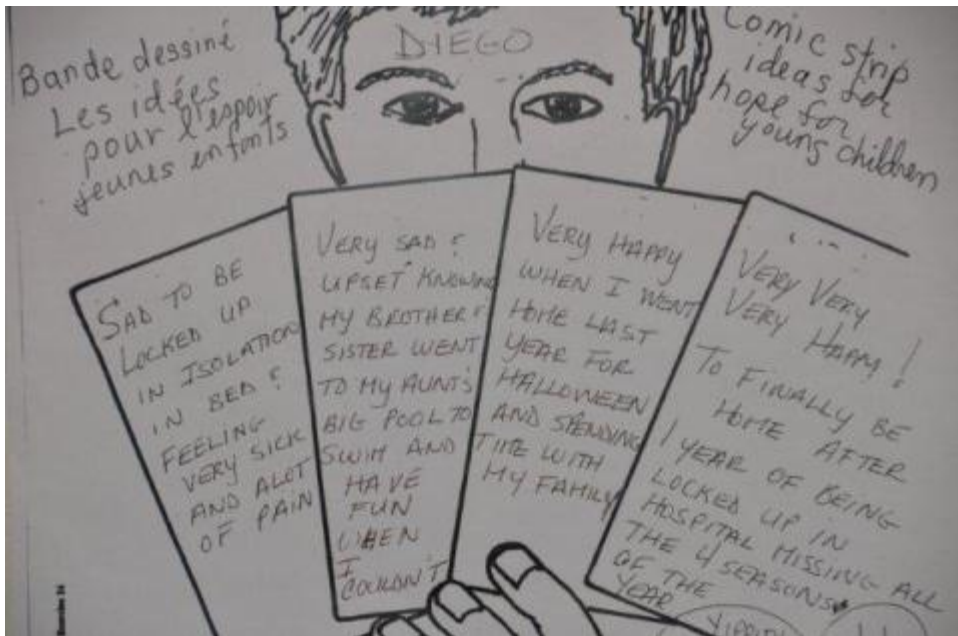 Bande dessiné
Les idées
pour l'espoir
jeunes enfants
DIEGO
Comic strip
ideas for
hope for
young children
SAD TO BE
LOCKED UP
IN ISOLATION
IN BED &
FEELING
VERY SICK
AND ALOT
OF PAIN
VERY SAD &
UPSET KNOWING
MY BROTHER &
SISTER WENT
TO MY AUNT'S
BIG POOL TO
SWIM AND
HAVE
FUN
WHEN
I
COULDN'T
VERY HAPPY
WHEN I WENT
HOME LAST
YEAR FOR
HALLOWEEN
AND SPENDING
TIME WITH
MY FAMILY
VERY VERY
VERY HAPPY!
TO FINALLY BE
HOME AFTER
1 YEAR OF BEING
LOCKED UP IN
HOSPITAL MISSING ALL
THE 4 SEASONS
OF THE
YEAR